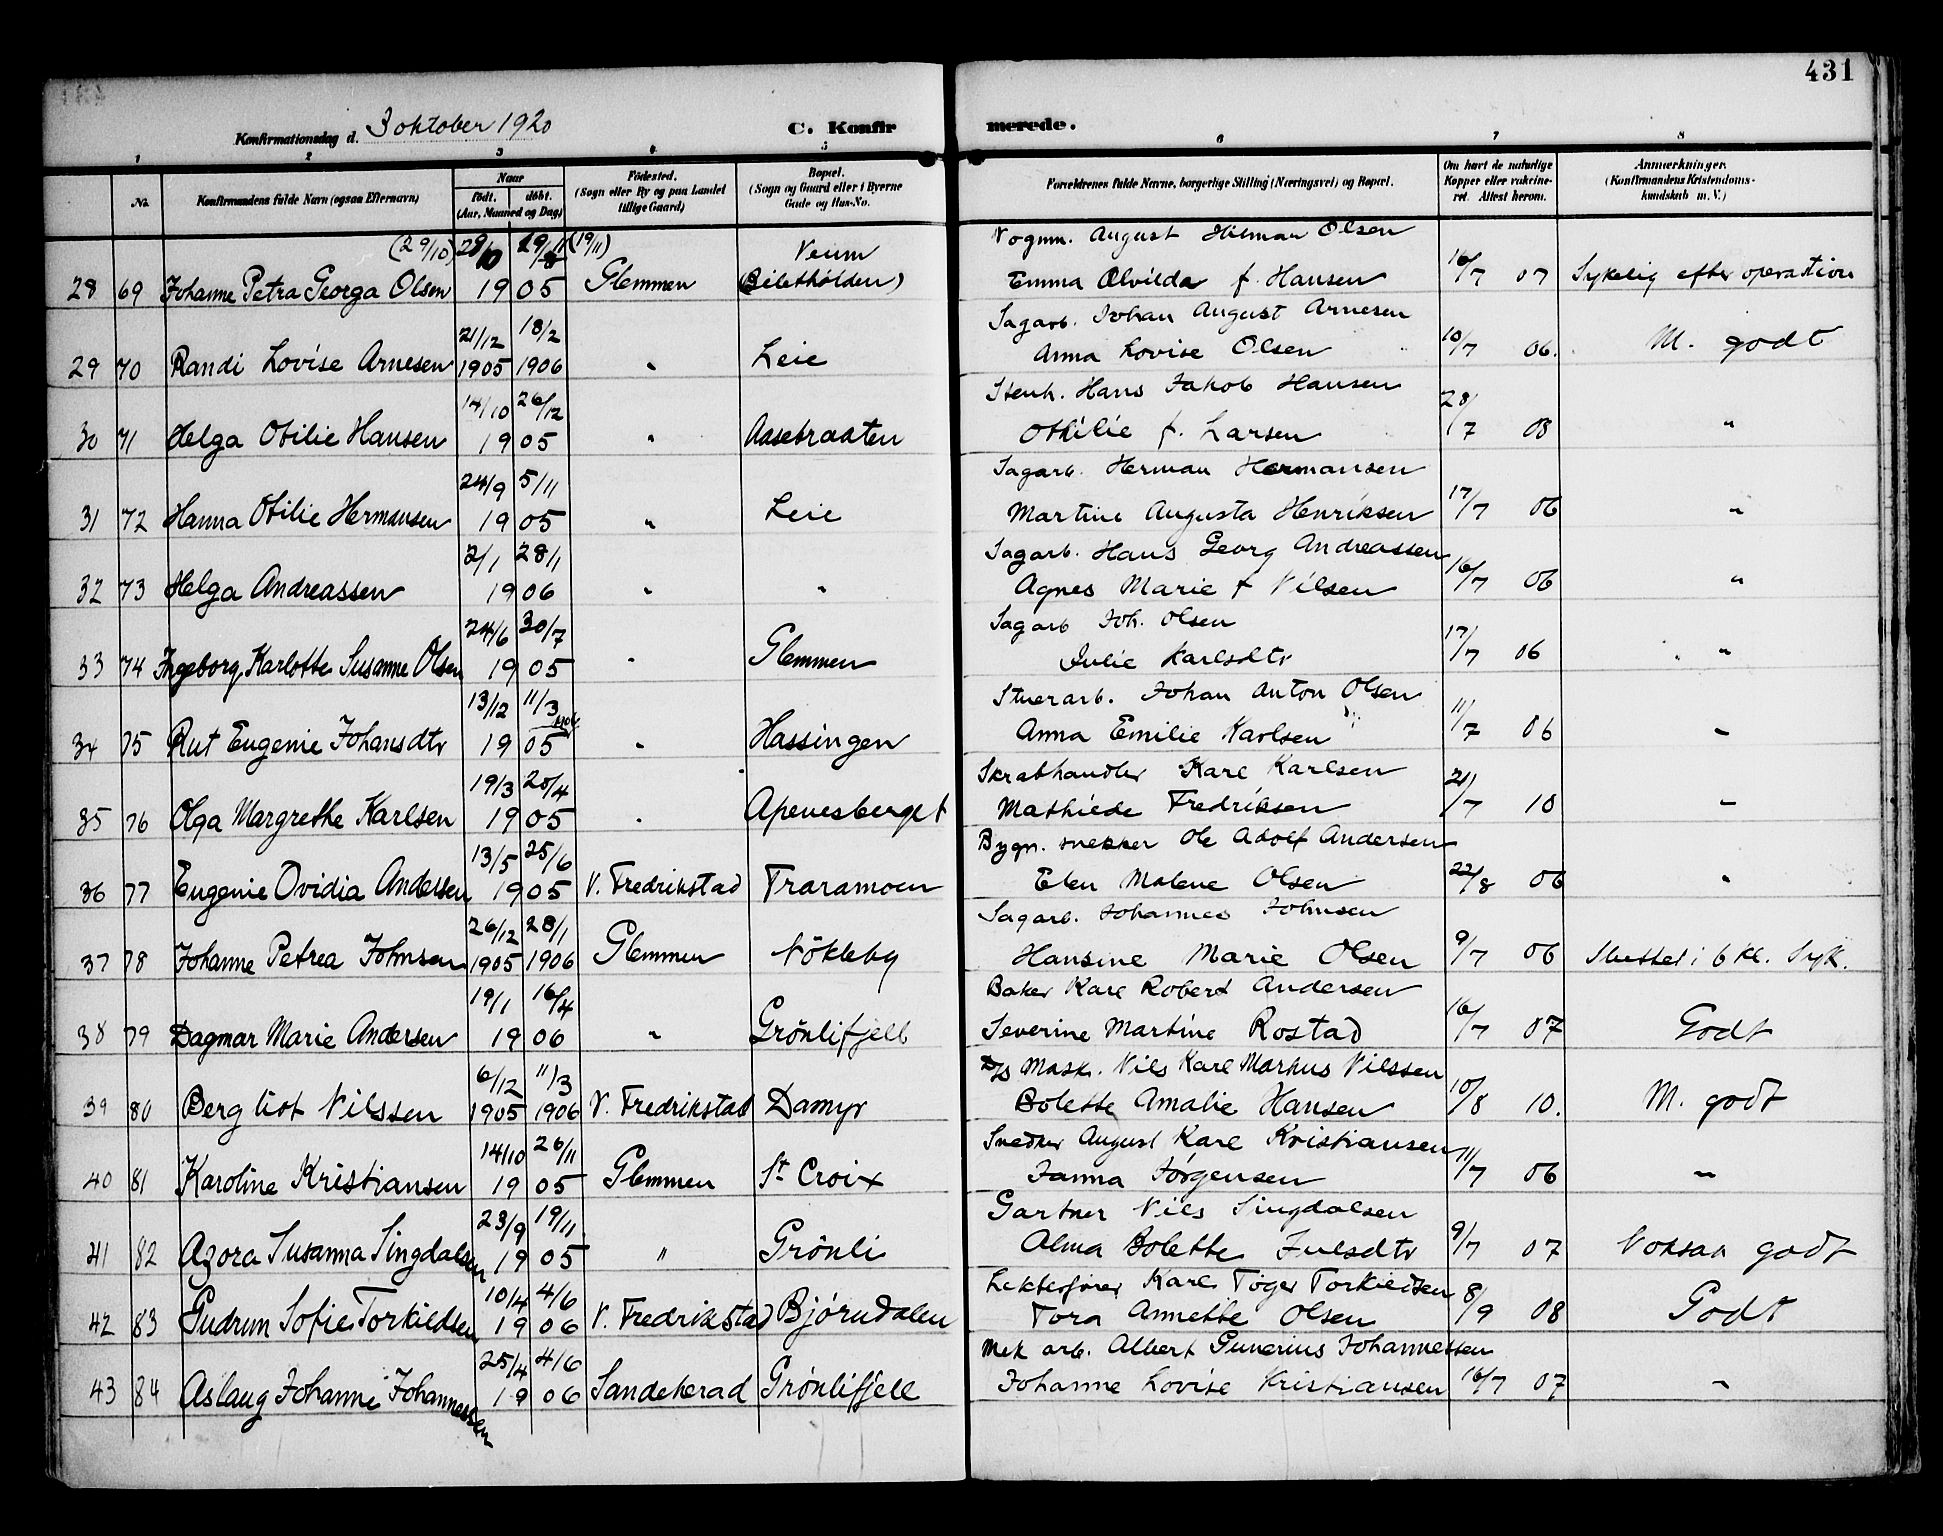 431
Konfirmationsdag d. 3 oktober 1920
C. Konfirmerede.
1 2 3 4 5 6 7 8
No. Konfirmandens fulde Navn (ogsaa Efternavn)
Naar født. døbt. (Aar, Maaned og Dag)
Fødested. (Sogn eller By og paa Landet tillige Gaard)
Bopæl. (Sogn og Gaard eller i Byerne Gade og Hus-No.
Forældrenes fulde Navne, borgerlige Stilling (Næringsvei) og Bopæl.
Om havt de naturlige Kopper eller vakcineret. Attest herom.
Anmærkninger. (Konfirmandens Kristendomskundskab m. V.)
(29/10) 29/10 (19/11) Veum Vognm. August Hilmar Olsen
28 69 Johanne Petra Georga Olsen 19 05 Glemmen Emma Alvilda f. Hansen 16/7 07 Sykelig efter operation
21/12 18/2 Sagarb. Johan August Arnesen
29 70 Randi Lovise Arnesen 1905 1906 " Leie Anna Lovise Olsen 10/7 06. M. godt
14/10 26/12 Stenh. Hans Jakob Hansen
30 71 Helga Otilie Hansen 19 05 " Aasebraaten Othilie f. Larsen 28/7 08 "
24/9 5/11 Sagarb. Herman Hermansen
31 72 Hanna Otilie Hermansen 19 05 " Leie Martine Augusta Henriksen 17/7 06 "
2/1 28/1 Sagarb. Hans Georg Andreassen
32 73 Helga Andreassen 19 06 " " Agnes Marie f Nilsen 16/7 06 "
24/6 30/7 Sagarb Joh. Olsen
33 74 Ingeborg Karlotte Susanne Olsen 19 05 " Glemmen Julie Karlsdtr 17/7 06 "
13/12 11/3 1906 Stuerarb. Johan Anton Olsen
34 75 Rut Eugenie Johansdtr 19 05 " Hassingen Anna Emilie Karlsen 11/7 06 "
19/3 20/4 Skraphandler Karl Karlsen
35 76 Olga Margrethe Karlsen 19 05 " Apenesberget Mathilde Fredriksen 21/7 10 "
13/5 25/6 Bygn. snekker Ole Adolf Andersen
36 77 Eugenie Ovidia Andersen 19 05 V. Fredrikstad Traramoen Elen Malene Olsen 22/8 06 "
26/12 28/1 Sagarb. Johannes Johnsen
37 78 Johanne Petrea Johnsen 1905 1906 Glemmen Nökleby Hansine Marie Olsen 9/7 06 Sluttet i 6 kl. Syk.
19/1 16/4 Baker Karl Robert Andersen
38 79 Dagmar Marie Andersen 19 06 " Grönlifjell Severine Martine Rostad 16/7 07 Godt
6/12 11/3 D/S Mask. Nils Karl Markus Nilssen
39 80 Bergliot Nilssen 1905 1906 V. Fredrikstad Damyr Bolette Amalie Hansen 10/8 10. M. godt
14/10 26/11 Snedker August Karl Kristiansen
40 81 Karoline Kristiansen 19 05 Glemmen St Croix Janna Jørgensen 11/7 06 "
23/9 19/11 Gartner Nils Singdalsen
41 82 Azora Susanna Singdalsen 19 05 " Grönli Alma Bolette Julsdtr 9/7 07 Noksaa godt
10/4 4/6 Lektefører Karl Tøger Torkildsen
42 83 Gudrun Sofie Torkildsen 19 06 V. Fredrikstad Bjørndalen Tora Annette Olsen 8/9 08 Godt
25/4 4/6 Mek arb. Albert Gunerius Johannessen
43 84 Aslaug Johanne Johannessen 19 06 Sandeherad Grönlifjell Johanne Lovise Kristiansen 16/7 07 "